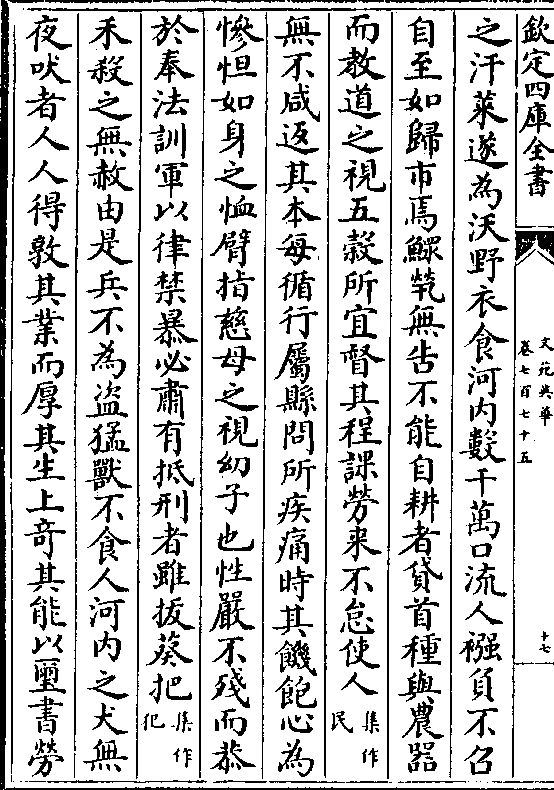 欽定四庫全書
文苑英華
卷七百七十五
十七
之汙萊遂為沃野衣食河内數千萬口流人襁負不召
自至如歸市焉鰥茕無告不能自耕者貸首種與農器
而教道之視五穀所宜督其程課勞来不怠使人集作民
無不咸返其本每循行屬縣問所疾痛時其饑飽心為
慘怛如身之恤臂指慈母之視幼子也性嚴不殘而恭
於奉法訓軍以律禁暴必肅有抵刑者雖拔葵把集作犯
禾殺之無赦由是兵不為盗猛獸不食人河内之犬無
夜吠者人人得敦其業而厚其生上奇其能以璽書勞